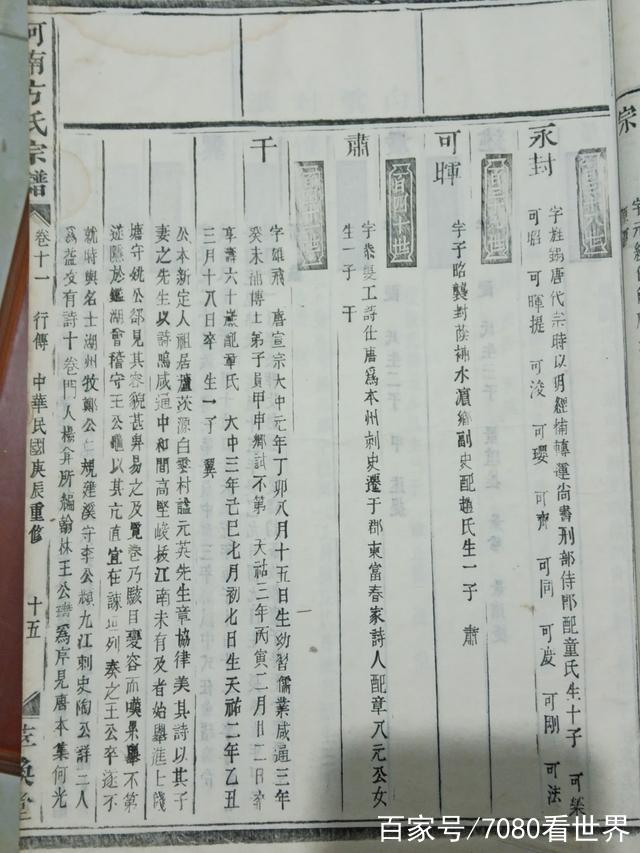 永封
字姓錫唐代宗時以明經補轉運尚書刑部侍郎配童氏生十子 可築
可昭 可暉提 可浚 可瓔 可齊 可同 可度 可剛 可法
可暉
字子昭襲封蔭補水濵鄉副史配趙氏生一子 肅
肅
字恭叟工詩仕唐爲本州刺史遷于郡東富春家詩人配章八元公女
生一子 干
干
字雄飛 唐宣宗大中元年丁卯八月十五日生幼習儒業咸通三年
癸未補博士弟子員甲申鄉試不第 天祐三年丙寅二月廿二日
享壽六十歲配章氏 大中三年己巳七月初七日生天祐二年乙丑
三月十八日卒 生一子 翼
公本新定人祖居蘆茨源白雲村諡元英先生章協律美其詩以其子
妻之先生以詩鳴咸通中和間高堅峻拔江南未有及者始舉進士
塘守姚公郃見其容貌甚卑易之及覽卷乃駭目變容而嘆果舉不第
遂隱於鑑湖會稽守王公龜以其亢直宜在諫垣列奏之王公卒遂不
就時與名士湖州牧鄭公仁規建溪守李公頻九江刺史陶公詳三人
爲益友有詩十卷門人楊弇所編翰林王公贊爲序見唐本集何光
河南方氏宗譜
卷十一 行傳 中華民國庚辰重修 十五
宗
百家号/7080看世界